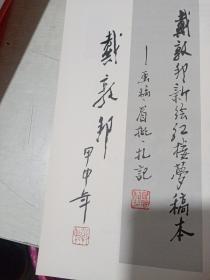 戴敦邦新绘红楼梦稿本
—画稿、眉批、札記
戴敦邦
甲申年